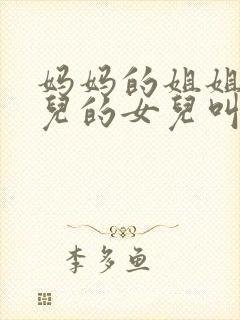 妈妈的姐姐
兒的女兒叫
李多鱼